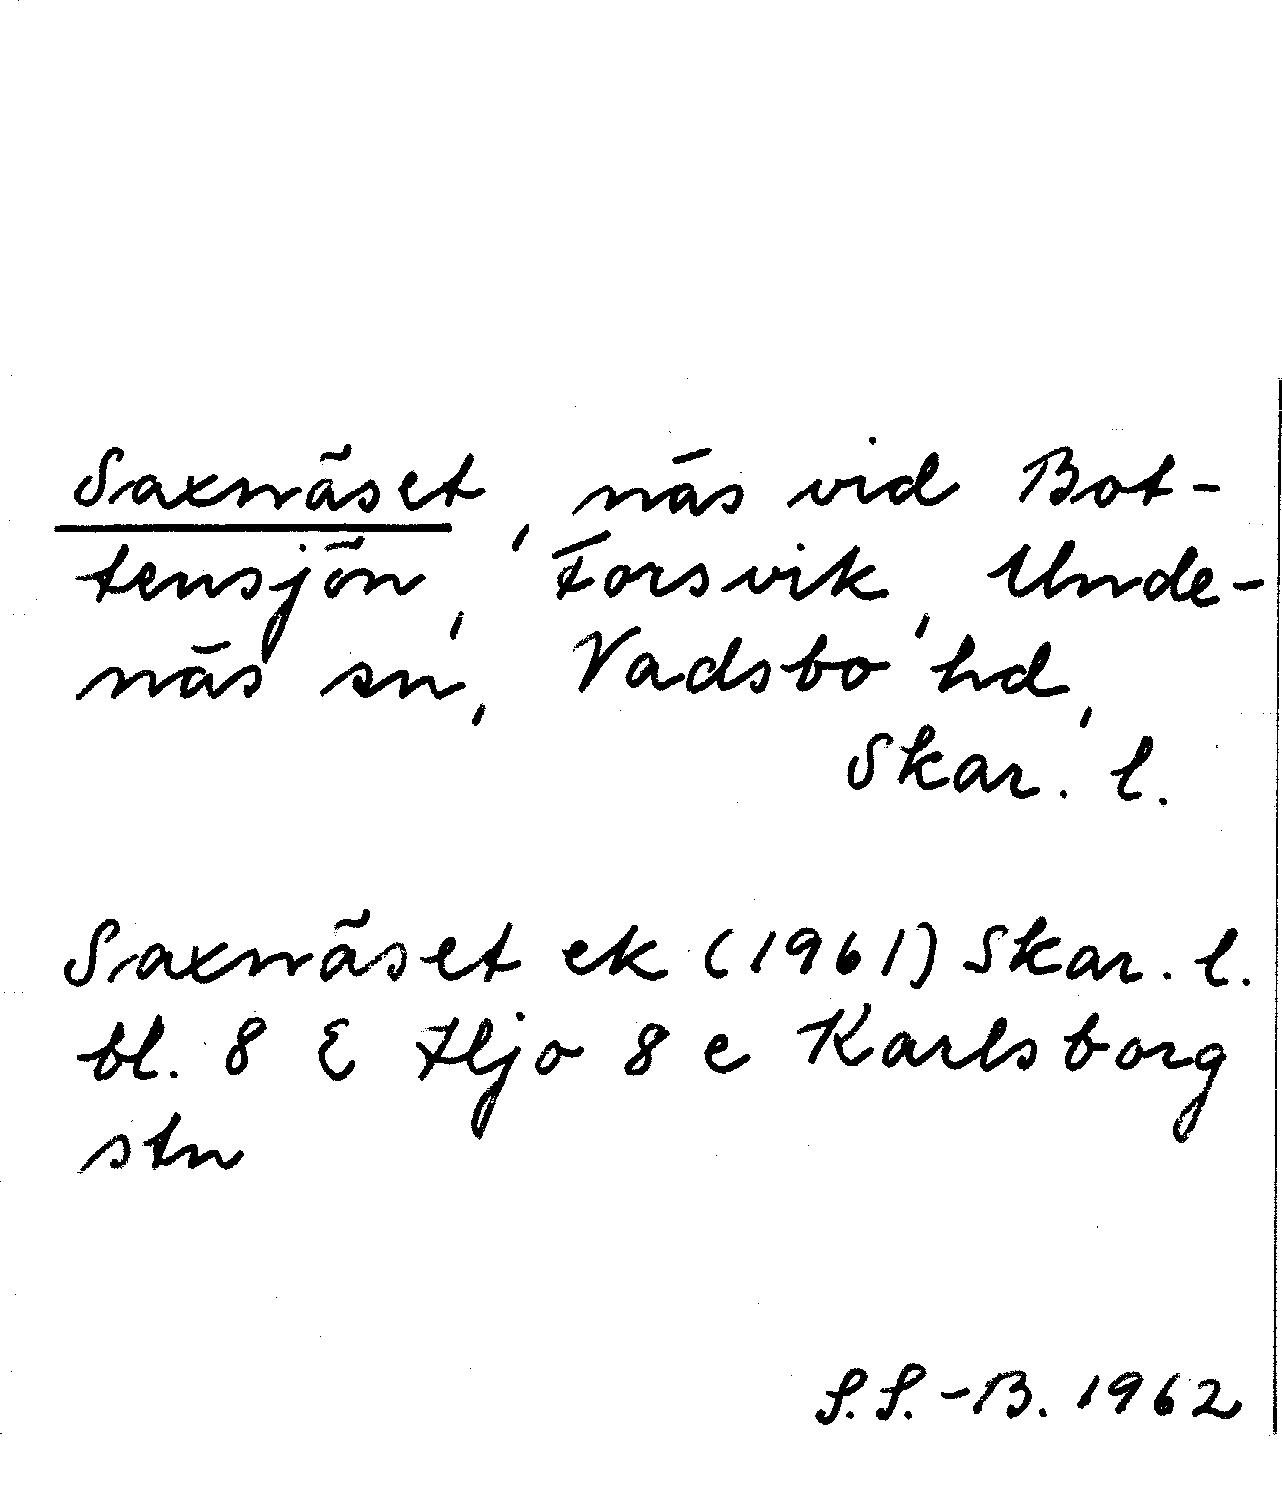 Saxnäset, näs vid Bot-
tensjön, Forsvik, Unde-
näs sn, Vadsbo hd,
Skar. l.
Saxnäset ek (1961) Skar. l.
bl. 8 E Hjo 8 e Karlsborg
stn
S.S.-B. 1962